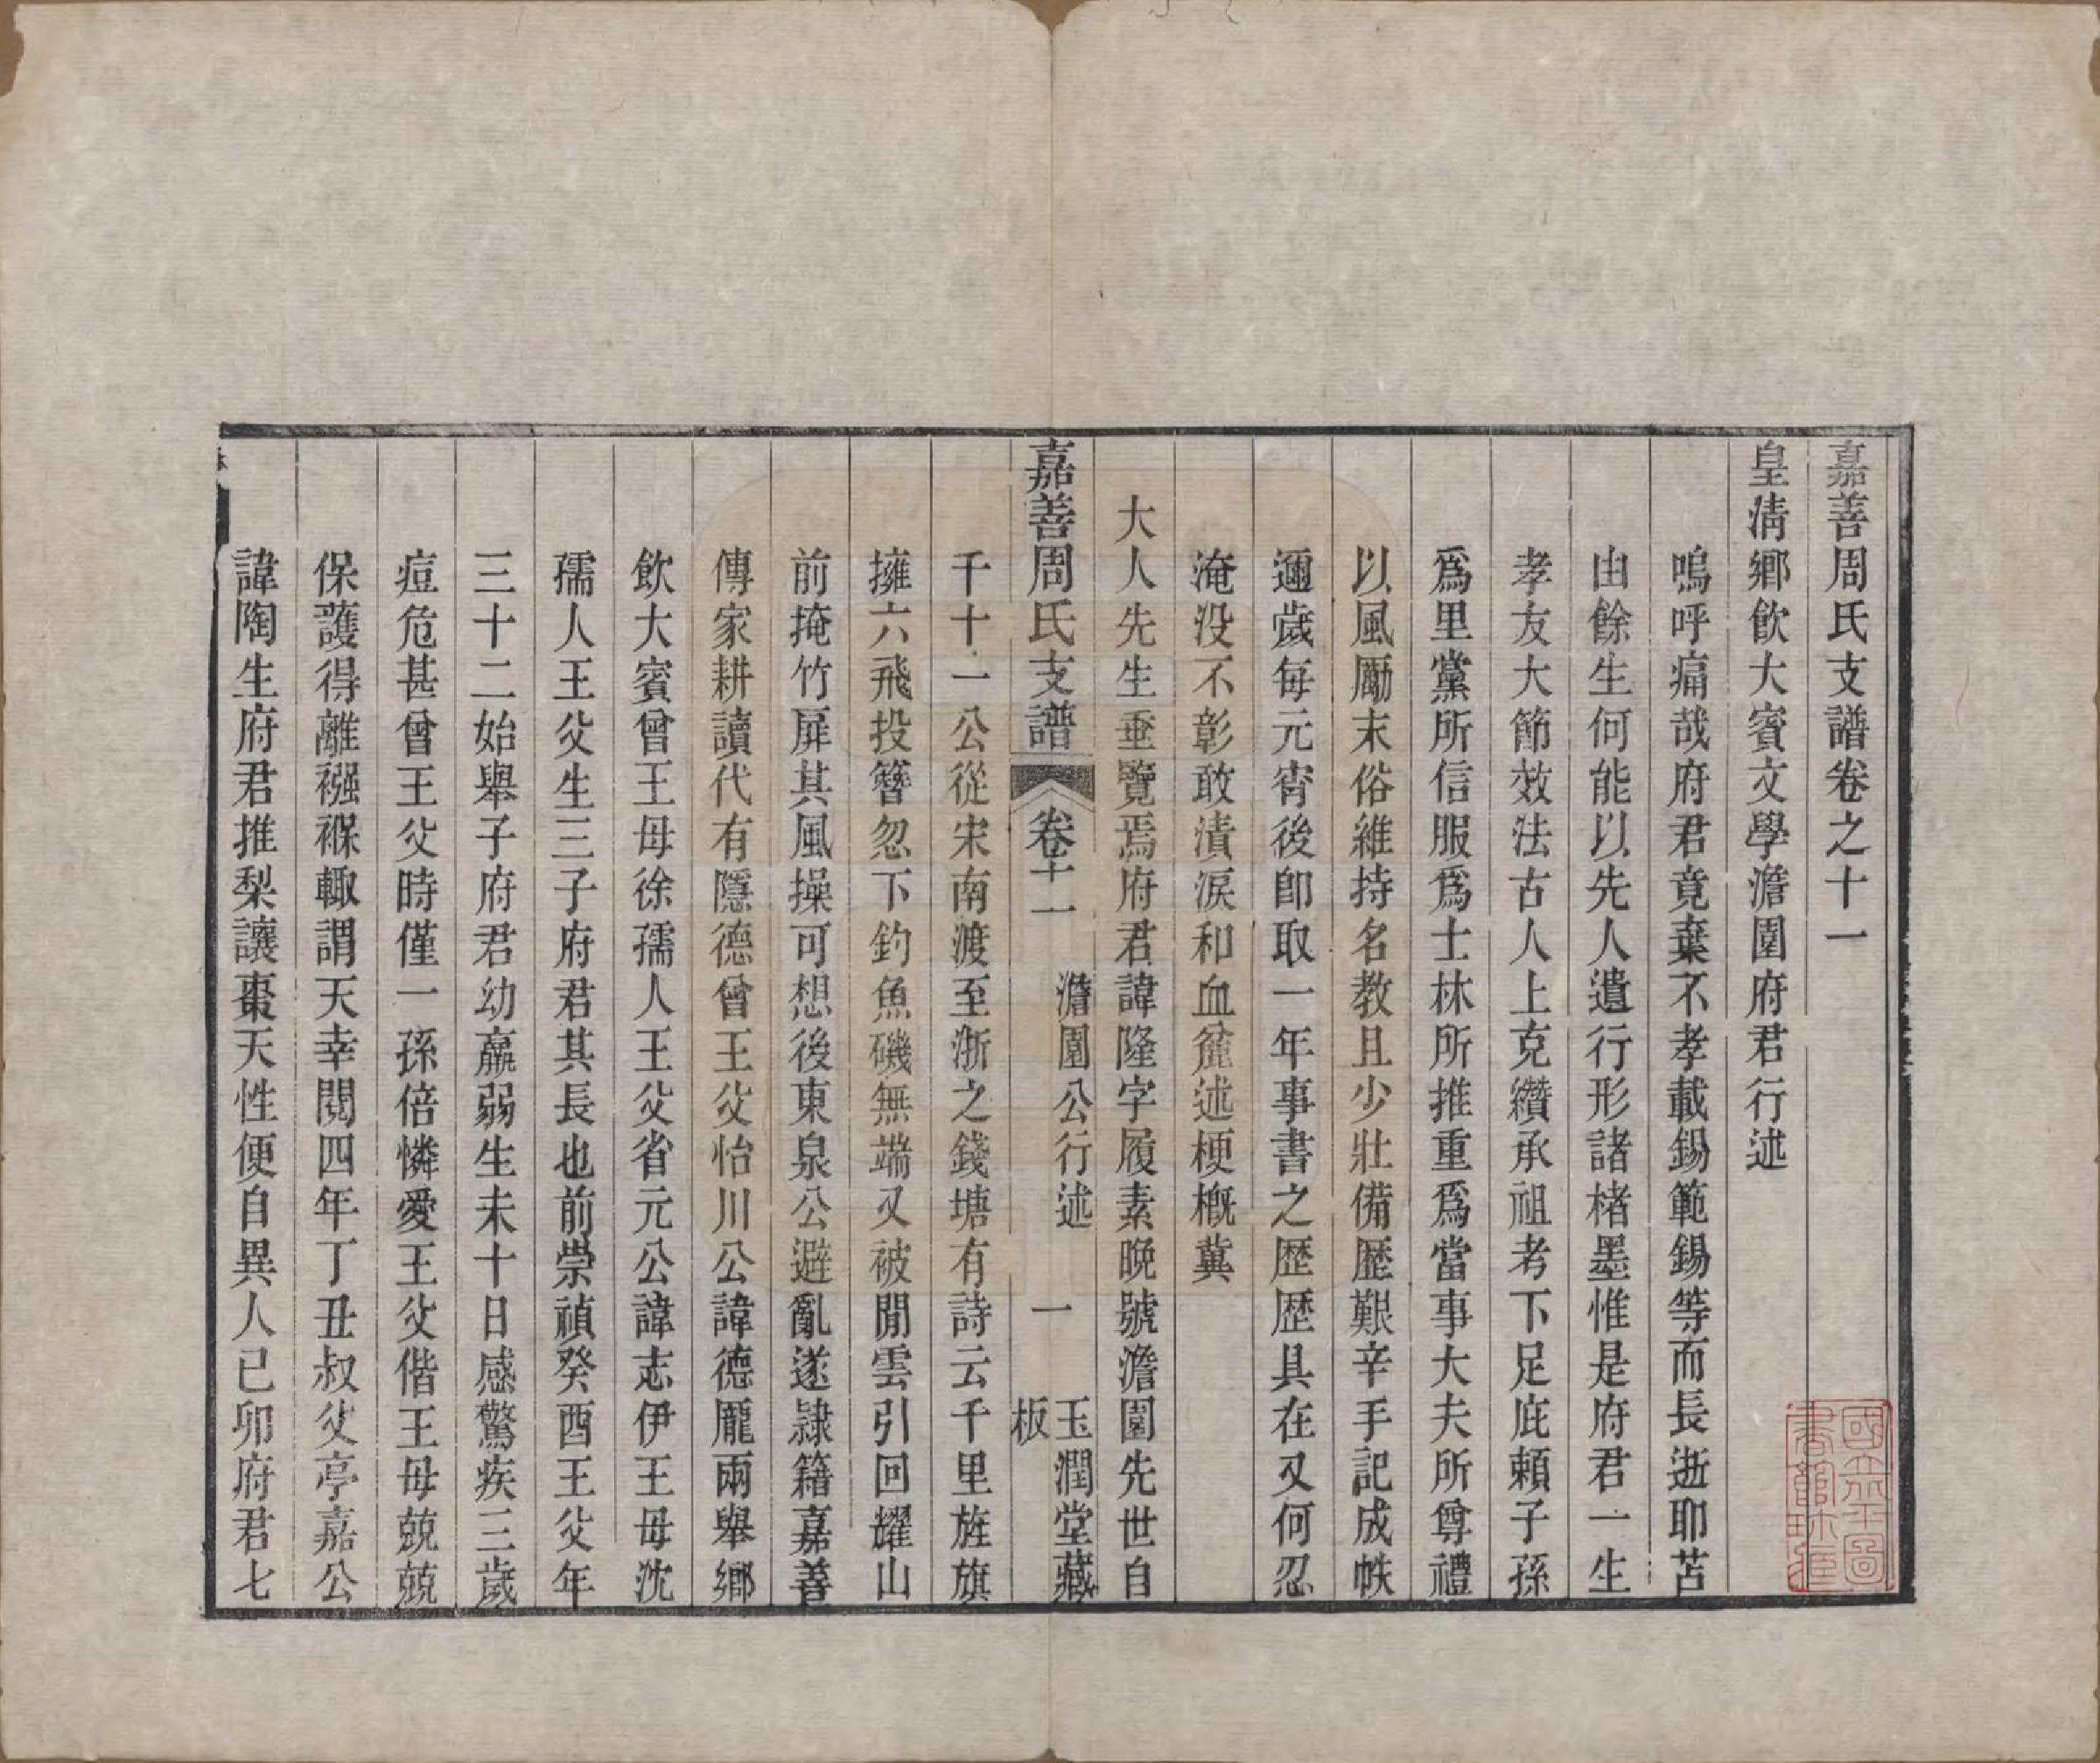 嘉善周氏支譜卷之十一
皇淸鄉飮大賓文學澹園府君行述
嗚呼痛哉府君竟棄不孝載錫範錫等而長逝耶苫
由餘生何能以先人遺行形諸楮墨惟是府君一生
孝友大節效法古人上克纘承祖考下足庇頼子孫
爲里黨所信服爲士林所推重爲當事大夫所尊禮
以風勵末俗維持名教且少壯備歴艱辛手記成帙
邇歲每元宵後卽取一年事書之歴歴具在又何忍
淹没不彰敢漬淚和血麄述梗槪冀
大人先生垂覽焉府君諱隆字履素晩號澹園先世自
嘉善周氏支譜
卷十一
澹園公行述
一
玉潤堂藏
板
千十一公從宋南渡至浙之錢塘有詩云千里旌旗
擁六飛投簪忽下釣魚磯無端又被閒雲引回耀山
前掩竹屏其風操可想後東泉公避亂遂隷籍嘉善
傳家耕讀代有隱德曾王父怡川公諱德龎兩舉鄉
飮大賓曾王母徐孺人王父省元公諱志伊王母沈
孺人王父生三子府君其長也前崇禎癸酉王父年
三十二始舉子府君幼羸弱生未十日感驚疾三歲
痘危甚曾王父時僅一孫倍憐愛王父偕王母兢兢
保護得離襁褓輙謂天幸閱四年丁丑叔父亭嘉公
諱陶生府君推梨讓棗天性便自異人己卯府君七
國立北平圖
書館珍藏